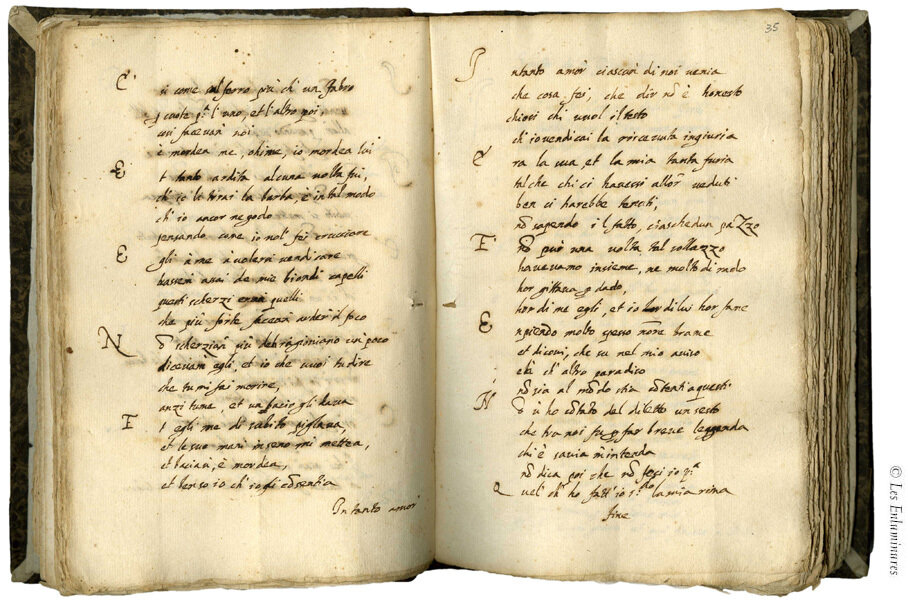 C
si come sul ferro più ch'un fabro
scuote p.ª l'uno, et l'altro poi,
cosi facevan noi
e mordea me, ohime, io mordea lui
E
t tanto ardita alcuna volta fui,
ch'io le tirai la barba, e in tal modo
ch'io ancor ne godo
pensando come io nol fei crucciare
E
gli à me a volersi vendicare
hassen assi de miei biondi capelli
questi scherzi eran quelli
che più forte facean arder il foco
N
scherzian più del ragioniano un poco
diceva egli, et io che vuoi tu dire
che tu mi fai morire,
anzi tu me, et un bacio gli dava
E
t egli me di subito pigliava,
et le sue mani in seno mi mettea,
et baciava, e mordea,
et penso io ch'io gli consentia
Intanto amor
35
I
ntanto amor ciascun di noi venia
che cosa fei, che dir nō è honesto
chiosi chi vuol il testo
ch'io vendicai la ricevuta ingiuria
E
ra la sua et la mia tanta furia
tal che chi ci havessi allor veduti
ben ci harebbe tenuti,
nō sapendo il fatto, ciaschedun paZZo
E
nō può una volta tal sollazzo
havevamo insieme, ne molto di rado
hor gittava dado,
hor di me egli, et io di lui hor fare
E
mpiendo molto spesso nr̄e brame
et dicovi, che su nel mio aviso
ch'altro paradiso
nō sia al mōdo stia cōtenti a questi
H
or vi ho cōtato del diletto un sesto
che tra noi fu p far breve leggenda
chi è savia m'intenda
nō dica poi che nō fesi io p.ª
Q
uel ch'ho fatt'io la mia rima
fine
© Les Enluminures